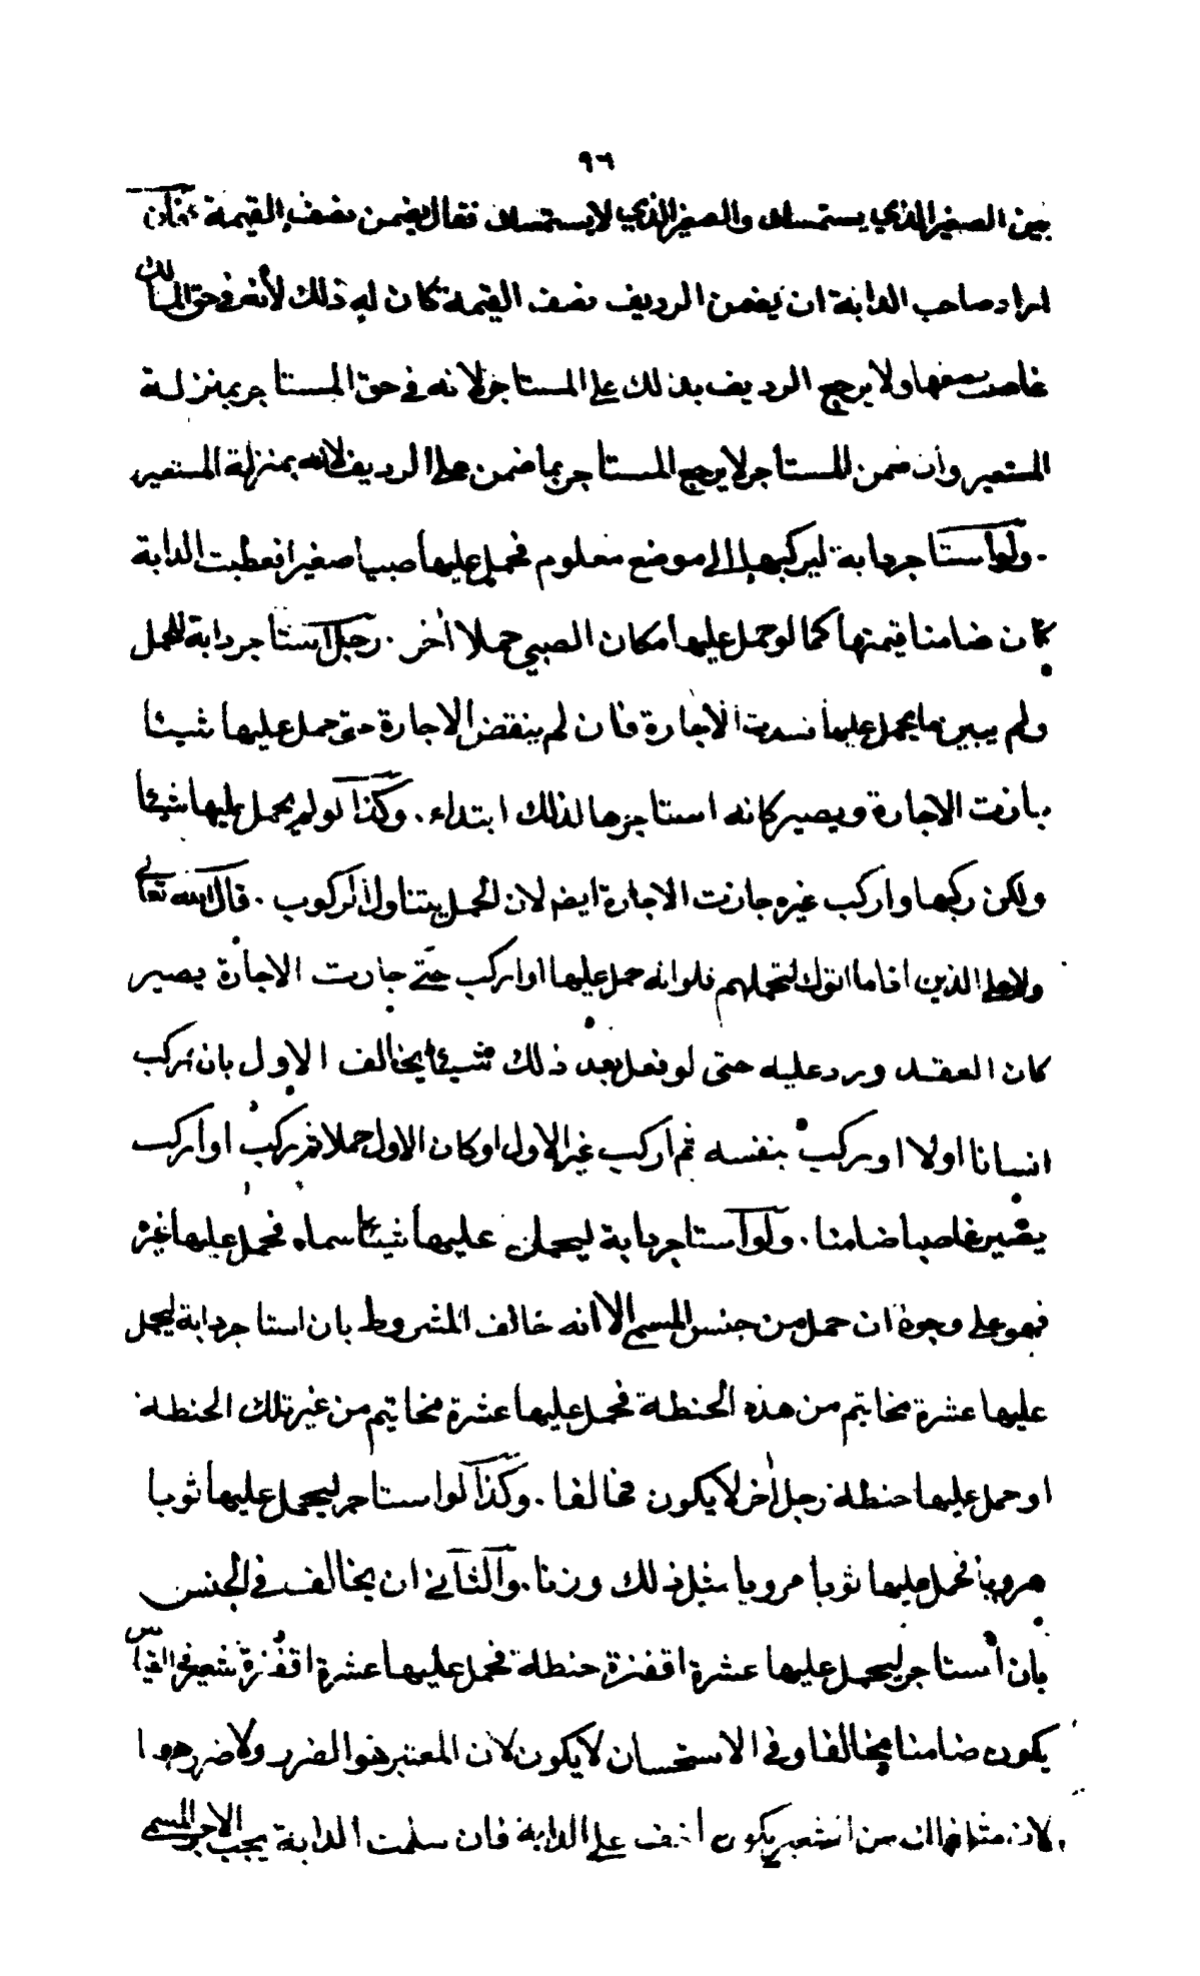 ٩٦
بين الصغير الذي يستمسك والصغير الذي لا يستمسك فقال يضمن نصف القيمة فان
اراد صاحب الدابة ان يضمن الرديف نصف القيمة كان له ذلك لأنه في حق المالك
غاصب نصفها ولا يرجع الرديف بذلك على المستاجر لانه في حق المستاجر بمنزلة
المستعير وان ضمن المستأجر لا يرجع المستأجر بما ضمن على الرديف لانه بمنزلة المستعير
. ولو استاجر دابة ليركبها الى موضع معلوم فحمل عليها صبيا صغيرا فعطبت الدابة
كان ضامنا قيمتها كما لو حمل عليها مكان الصبي حملا اخر . رجل استاجر دابة للحمل
ولم يبين ما يحمل عليها فسدت الاجارة فان لم ينقض الاجارة حتى حمل عليها شيئا
جازت الاجارة ويصير كانه استاجرها لذلك ابتداء . وكذا لو لم يحمل عليها شيئا
ولكن ركبها او اركب غيره جازت الاجارة ايضا لان الحمل يتناول الركوب . قال الله تعالى
ولا على الذين اذا ما اتوك لتحملهم فلو انه حمل عليها او اركب حتى جازت الاجارة يصير
كان العقد ورد عليه حتى لو فعل بعد ذلك شيئا يخالف الاول بان يركب
انسانا اولا او يركب بنفسه ثم اركب غير الاول او كان الاول حملا ثم يركب او اركب
يصير غاصبا ضامنا . ولو استاجر دابة ليحمل عليها شيئا سماه فحمل عليها غيره
فهو على وجوه ان حمل من جنس المسمى الا انه خالف المشروط بان استاجر دابة ليحمل
عليها عشرة مخاتيم من هذه الحنطة فحمل عليها عشرة مخاتيم من غير تلك الحنطة
او حمل عليها حنطة رجل اخر لا يكون مخالفا . وكذا لو استاجر ليحمل عليها ثوبا
هرويا فحمل عليها ثوبا مرويا مثل ذلك وزنا . والثاني ان يخالف في الجنس
بان استاجر ليحمل عليها عشرة اقفزة حنطة فحمل عليها عشرة اقفزة شعير في القياس
يكون ضامنا مخالفا وفي الاستحسان لا يكون لان المعتبر هو الضرر ولا ضرر هو
لان مثل ذلك من الشعير يكون اخف على الدابة فان سلمت الدابة يجب الاجر المسمى